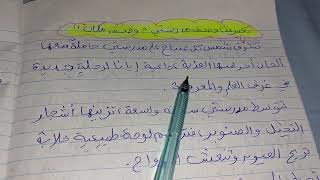 تعبيرات وصف مدرستي (وصف مكان)
تشرق شمس كل صباح على مدرستي حاملة معها
ألحان أجراسها العذبة داعية إيانا لرحلة جديدة
في غرف العلم والمعرفة.
تتوسط مدرستي ساحة واسعة، تزينها أشجار
النخيل والصنوبر، لوحة طبيعية خلابة
تريح العيون وتنعش الأرواح.